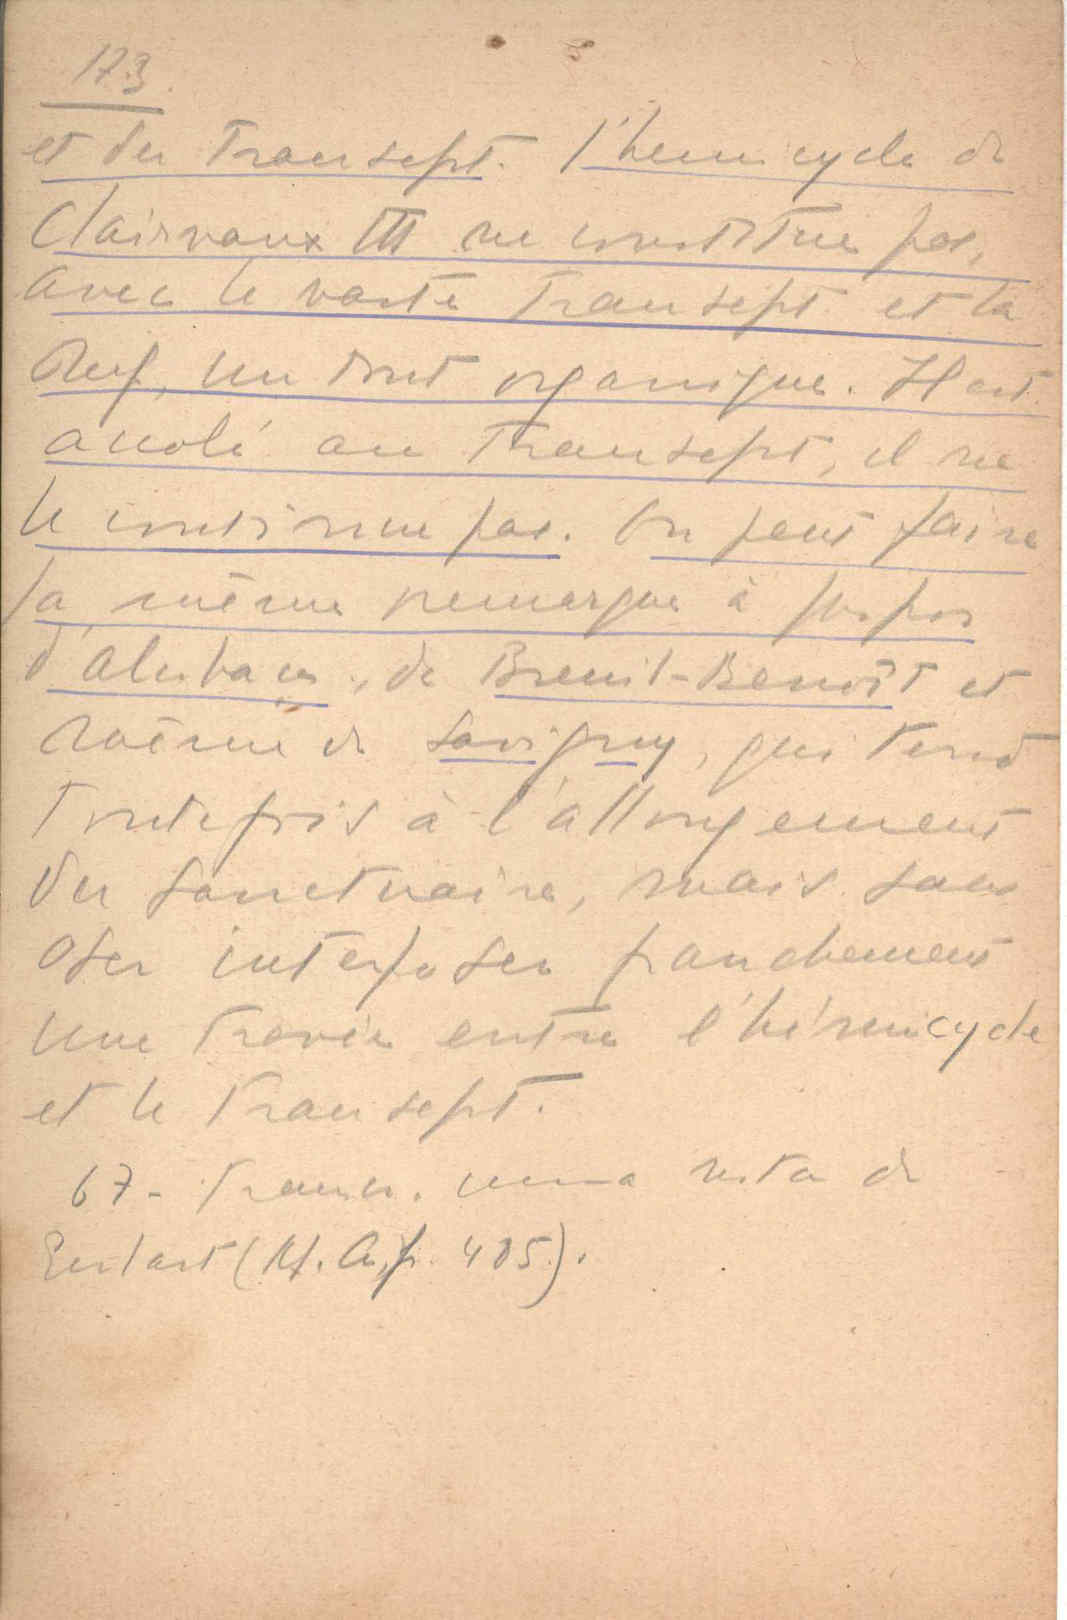 173.
et du transept. l'hemicycle de
Clairvaux III ne constitue pas,
avec le vaste transept et la
nef, un tout organique. Il est
accolé au transept, il ne
le continue pas. On peut faire
la même remarque à propos
d'Alcobaça, de Breuil-Benoît et
même de Savigny, qui tend
toutefois à l'allongement
du sanctuaire, mais sans
oser interposer franchement
une travée entre l'hémicycle
et le transept.
67 - Transc. uma nota de
Enlart (M. A, p. 405).